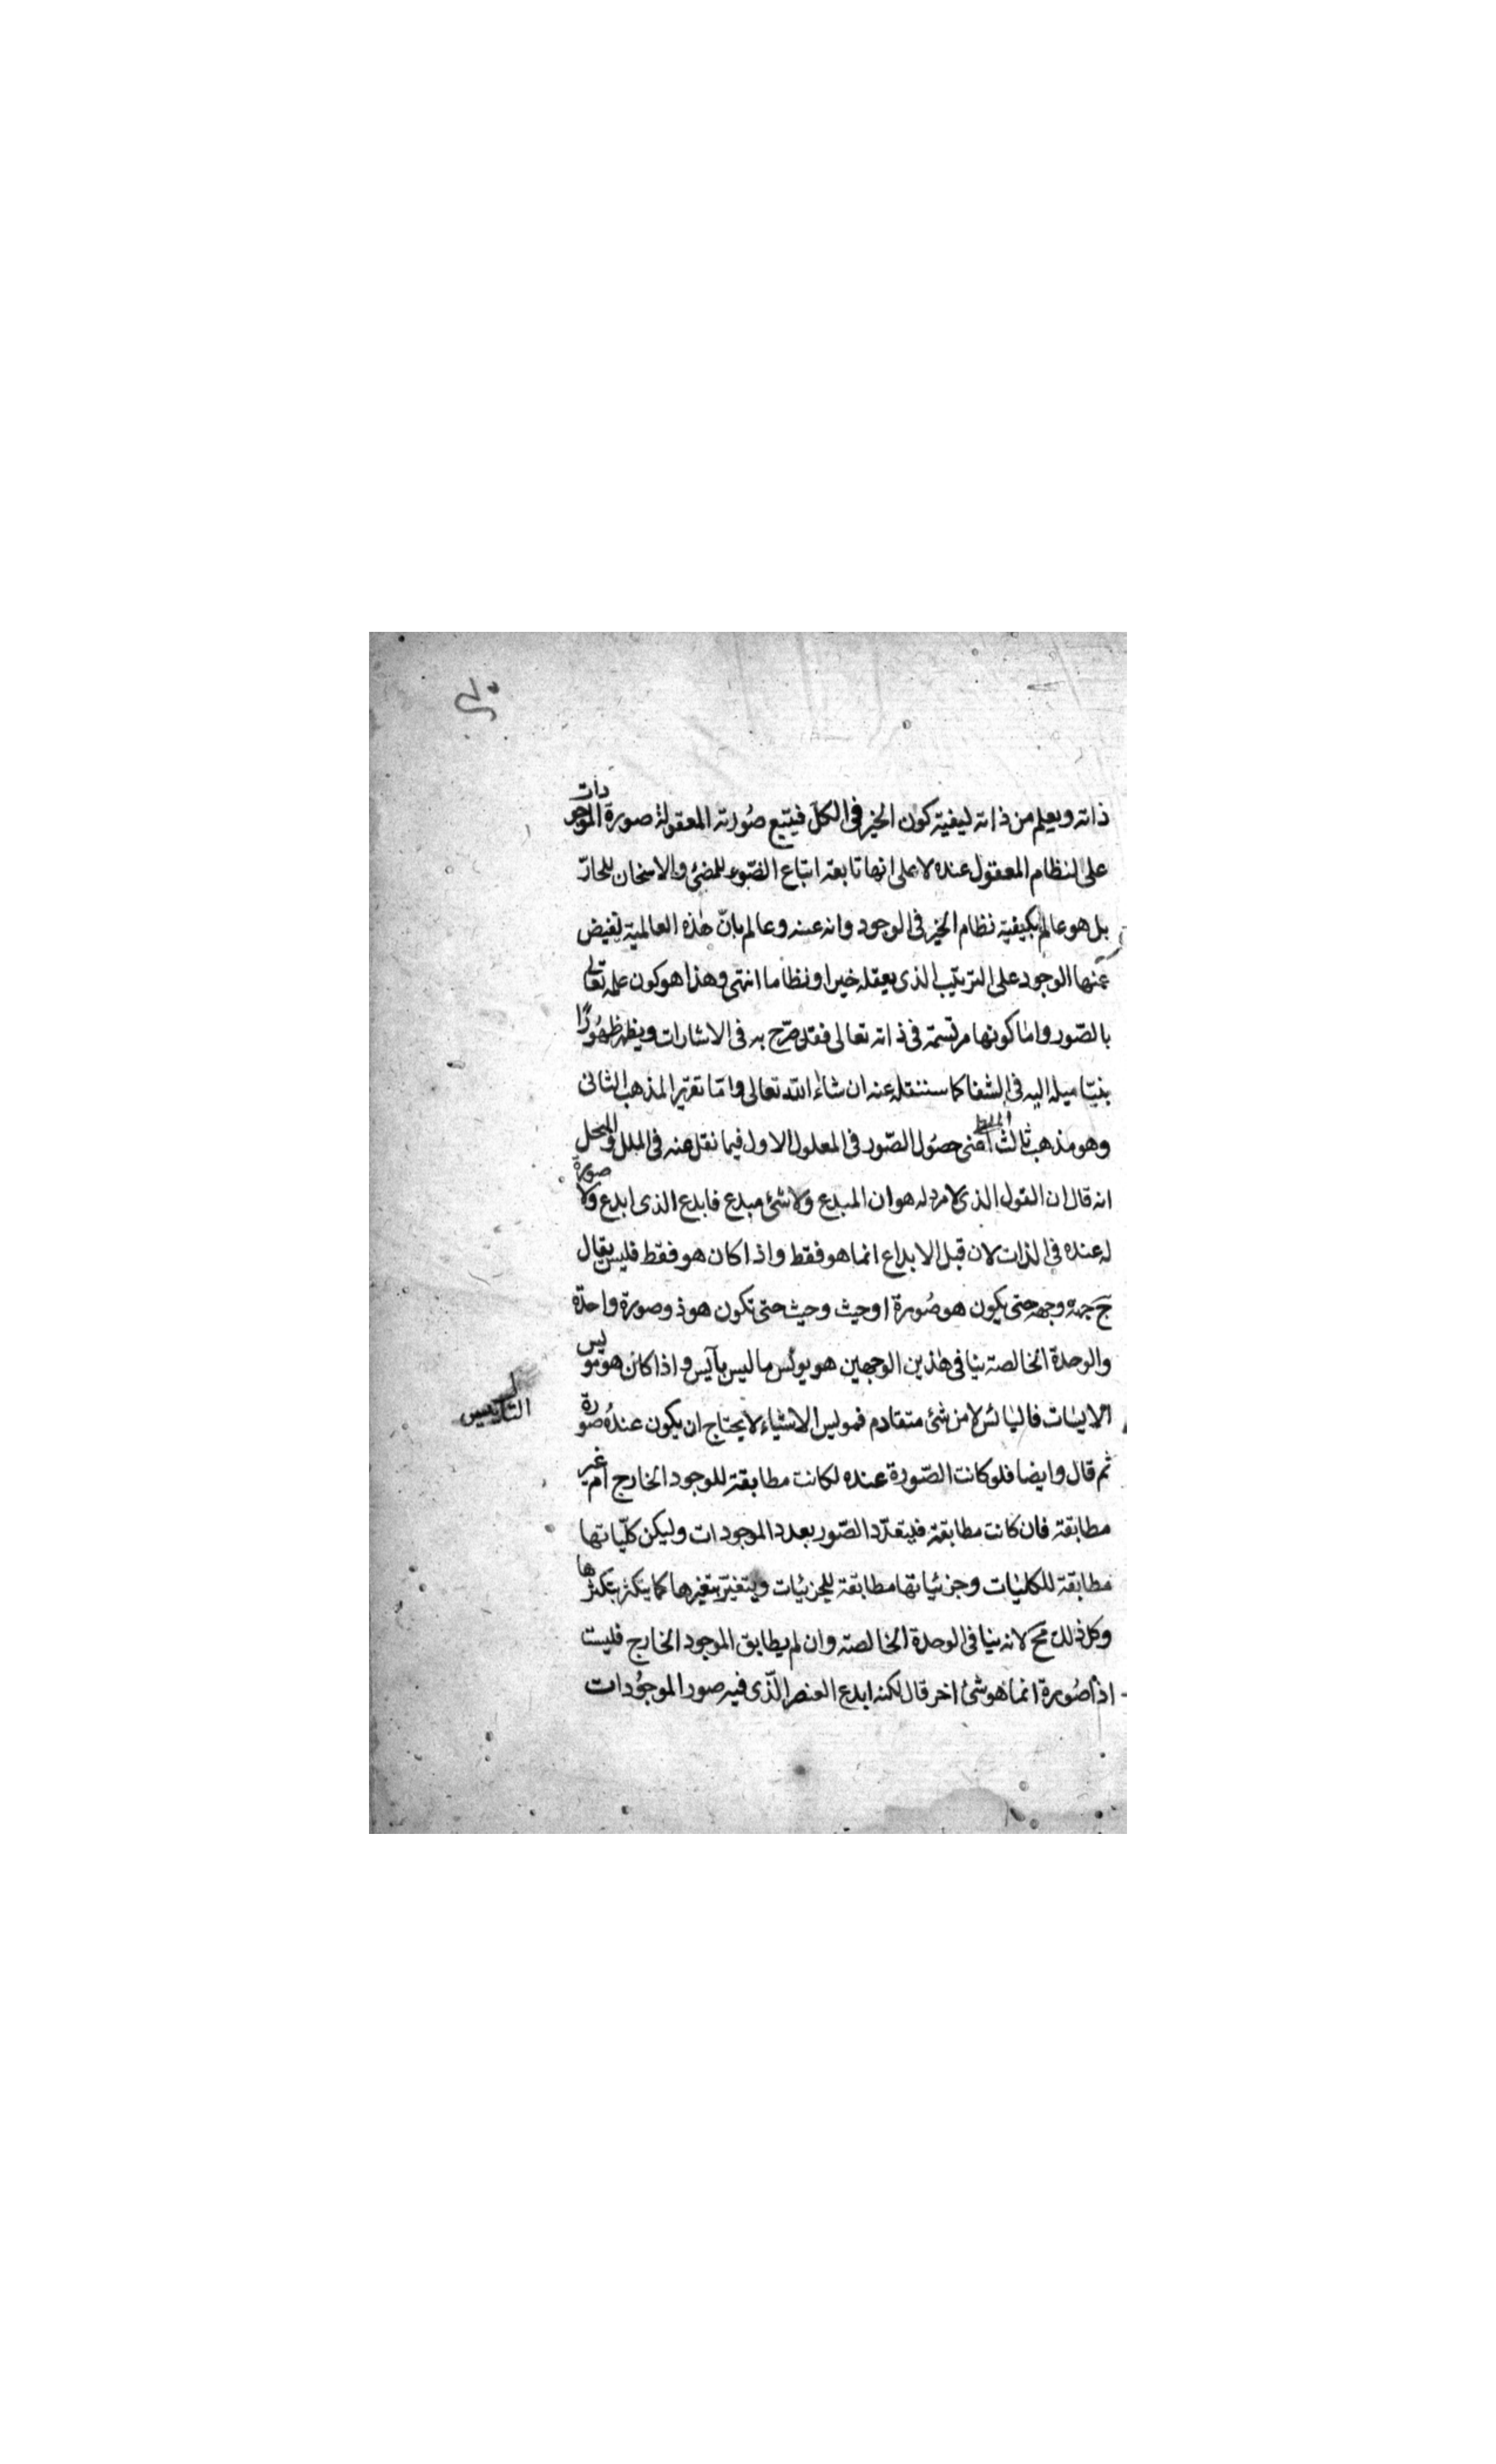 ذاته ويعلم من ذاته كيفية كون الخير فى الكل فيتبع صورته المعقولة صورة الموجودات
على النظام المعقول عنده لا على انها تابعة اتباع الضوء للمضئ والاسخان للحارّ
بل هو عالم بكيفية نظام الخير فى الوجود وانه عنه وعالم بانّ هذه العالمية تفيض
عنها الوجود على الترتيب الذى يعقله خيرا ونظاما انتهى وهذا هو كون علمه تعالى
بالصّور واما كونها مرتسمة فى ذاته تعالى فقد صرّح به فى الاشارات ويظهر ظهُورًا
بيّنا ميله اليه فى الشفا كما سننقله عنه ان شاء الله تعالى وامّا تقرير المذهب الثانى
وهو مذهب ثالث اعنى حصُول الصّور فى المعلول الاول فيما نقل عنه فى الملل والنحل
انه قال ان القول الذى لا مردّ له هو ان المبدع ولا شئ مبدع فابدع الذى ابدع ولا صورة
له عنده فى الذات لان قبل الابداع انما هو فقط واذا كان هو فقط فليس يقال
ح جهة وجهة حتى يكون هو صُورة او حيث وحيث حتى تكون هو ذو صورة واحدة
والوحدة الخالصة ينافى هذين الوجهين هو يوئس ما ليس بآيس واذا كان هو مويس
الايسات فاليائس لا من شئ متقادم فمويس الاشياء لا يحتاج ان يكون عندهُ صورة
التاييس
ثم قال وايضا فلو كانت الصّورة عنده لكانت مطابقة للوجود الخارج ام غير
مطابقة فان كانت مطابقة فليتعدّد الصّور بعدد الموجودات وليكن كلّياتها
مطابقة للكليات وجزئياتها مطابقة للجزئيات ويتغيّر بتغيرها كما يتكثر بتكثرها
وكل ذلك مح لانه ينافى الوحدة الخالصة وان لم يطابق الموجود الخارج فليست
اذًا صُورة انما هو شئ اخر قال لكنه ابدع العنصر الّذى فيه صور الموجُودات